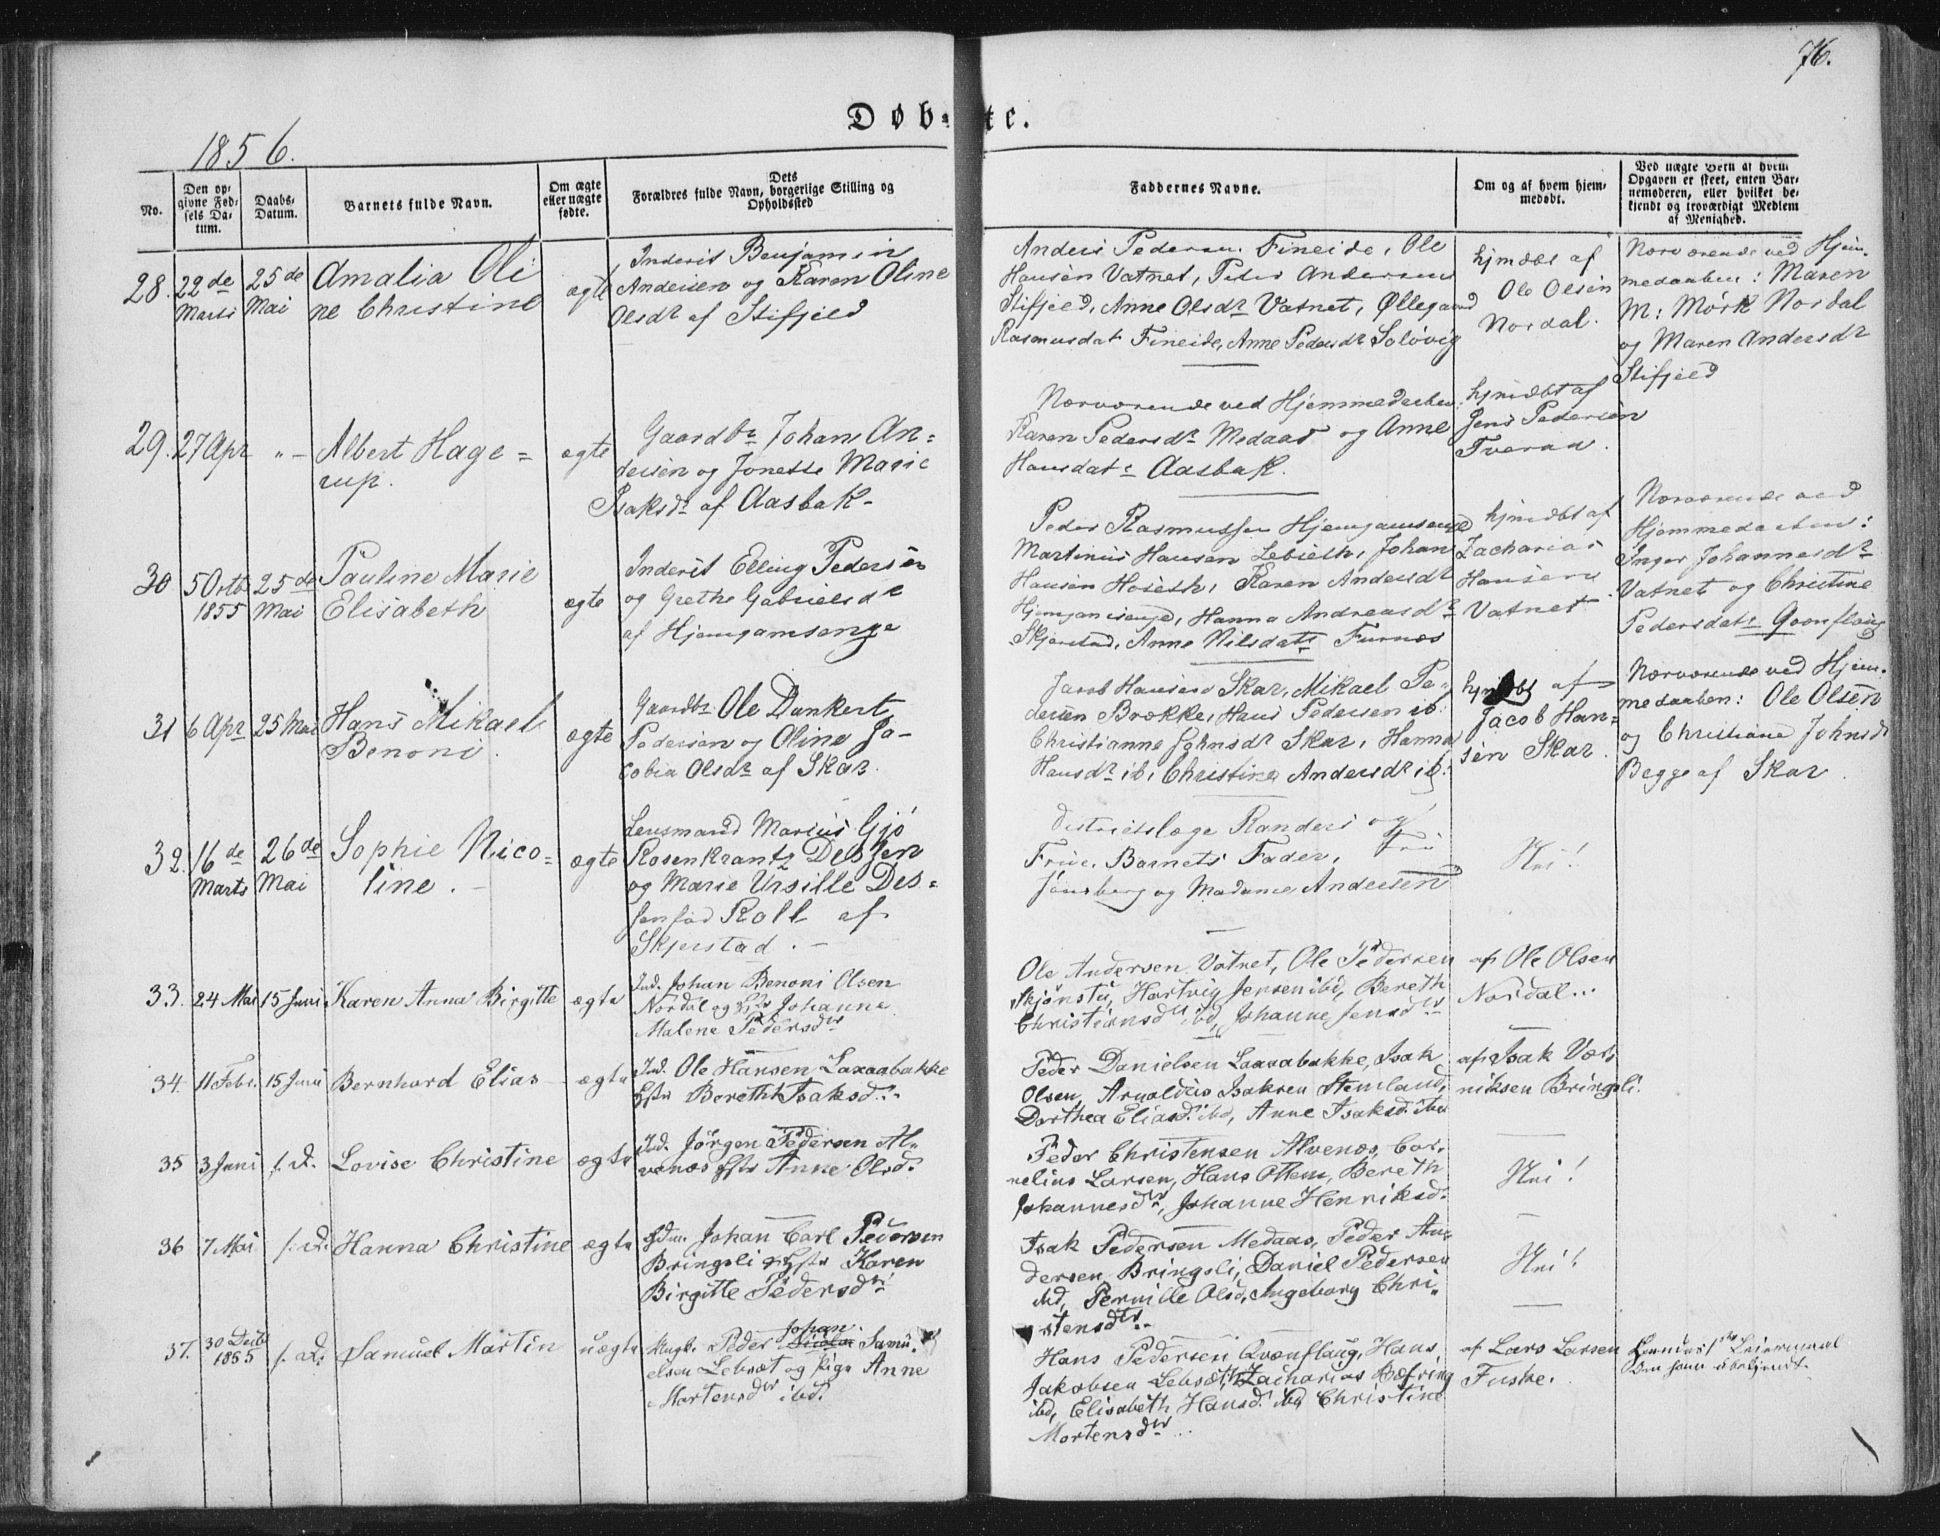 76.
Døb-te.
1856.
No.
Den op-
givne Fød-
sels Da-
tum.
Daabs-
Datum.
Barnets fulde Navn.
Om ægte
eller uægte
fødte.
Dets
Forældres fulde Navn, borgerlige Stilling og
Opholdssted
Faddernes Navne.
Om og af hvem hjem-
medøbt.
Ved uægte Børn at hvem
Opgaven er skeet, enten Bar-
nemoderen, eller hvilket be-
kjendt og troværdigt Medlem
af Menighed.
28. 22de Marts
25de Mai
Amalia Oli
ne Christine
ægte
Inderst Benjamin
Andersen og Karen Oline
Olsdr af Stifjeld
Anders Pedersen Fineide, Ole
Hansen Vatnet, Peder Andersen
Stifjeld, Anne Olsdr Vatnet, Øllegaard
Rasmusdat Fineide, Anne Pedersdr Soløvig
hjmdbt af
Ole Olsen
Nordal.
Nærværende ved Hjem-
medaaben: Maren
M: Mørk Nordal
og Maren Andersdr
Stifjeld
29. 27 Apr
" -
Albert Hage =
rup.
ægte
Gaardbr Johan An=
dersen og Jonette Marie
Isaksdr af Aasbak -
Nærværende ved Hjemmedaaben:
Karen Pedersdr Medaas og Anne
Hansdatr Aasbak.
hjmdbt af
Jens Pedersen
Tveraa.
30 5 Octb 1855
25de Mai
Pauline Marie
Elisabeth
ægte
Inderst Elling Pedersen
og Grethe Gabrielsdr
af Hjemgamsenge
Peder Rasmussen Hjemgamsenge
Martinus Hansen Lebseth, Johan
Hansen Hoseth, Karen Andersdr
Hjemgamsenge, Hanna Andreasdr
Skjerstad, Anne Nilsdatr Furnæs
hjmdbt af
Zacharias
Hansen
Vatnet
Nærværende ved
Hjemmedaaben:
Inger Johannesdr
Vatnet og Christine
Pedersdatr Qvænflaug
31 6 Apr
25 Mai
Hans Mikael
Benoni.
ægte
Gaardbr Ole Dankert
Pedersen og Oline Ja-
cobia Olsdr af Skar.
Jacob Hansen Skar, Mikael Pe-
dersen Brække, Hans Pedersen ib:
Christianne Johnsdr Skar, Hanna
Hansdr ib, Christine Andersdr ib:
hjmdbt af
Jacob Han-
sen Skar
Nærværende ved Hjem-
medaaben: Ole Olsen
og Christiane Johnsdr
Begge af Skar.
32. 16de Marts
26de Mai
Sophie Nico=
line. -
ægte
Lensmand Marius Gjø
Rosenkrantz Dessen
og Marie Ursille Des=
sen fød Roll af
Skjerstad. -
Districtslæge Randers og
Frue, Barnets Fader, Fru
Jønsberg og Madame Andersen
Nei!
33. 24 Mai
15 Juni
Karen Anna Birgitte
ægte
Ind. Johan Benoni Olsen
Nordal og Hstr Johanna
Malene Pedersdtr
Ole Andersen Vatnet, Ole Pedersen
Skjønstu, Hartvig Jensen ibd, Bereth
Christiansdtr ibd, Johanne Jensdtr
af Ole Olsen
Nordal..
34. 11 Febr.
15 Juni
Bernhard Elias
ægte
Ind. Ole Hansen Laxaabakke
Hstr Bereth Isaksd.
Peder Danielsen Laxaabakke, Isak
Olsen, Arnoldus Isaksen Stemland,
Dorthea Eliasd. ibd, Anne Isaksd. ibd
af Isak Væt-
niksen Bringsli.
35 3 Juni
s. D.
Lovise Christine
ægte
Ind. Jørgen Pedersen Al-
venæs Hstr Anne Olsd.
Peder Christensen Alvenæs, Cor-
nelius Larsen, Hans Ottem, Bereth
Johannesdtr, Johanne Henriksd.
Nei!
36 7 Mai
s. D.
Hanna Christine
ægte
Gdm. Johan Carl Pedersen
Bringsli & Hstr Karen
Birgitte Pedersdtr
Isak Pedersen Medaas, Peder An-
dersen Bringsli, Daniel Pedersen
ibd, Pernille Olsd, Ingeborg Chri-
stensdtr.
Nei!
37. 30 Decbr 1855
s. D.
Samuel Martin
uægte
Ungk. Peder Johan Samu-
elsen Lebsæt og Pige Anne
Mortensdtr ibd.
Hans Pedersen Qvænflaug, Hans
Jakobsen Lebsæt, Zacharias Hæfring
ibd, Elisabeth Hansd. ibd, Christine
Mortensdtr...
af Lars Larsen
Fuske.